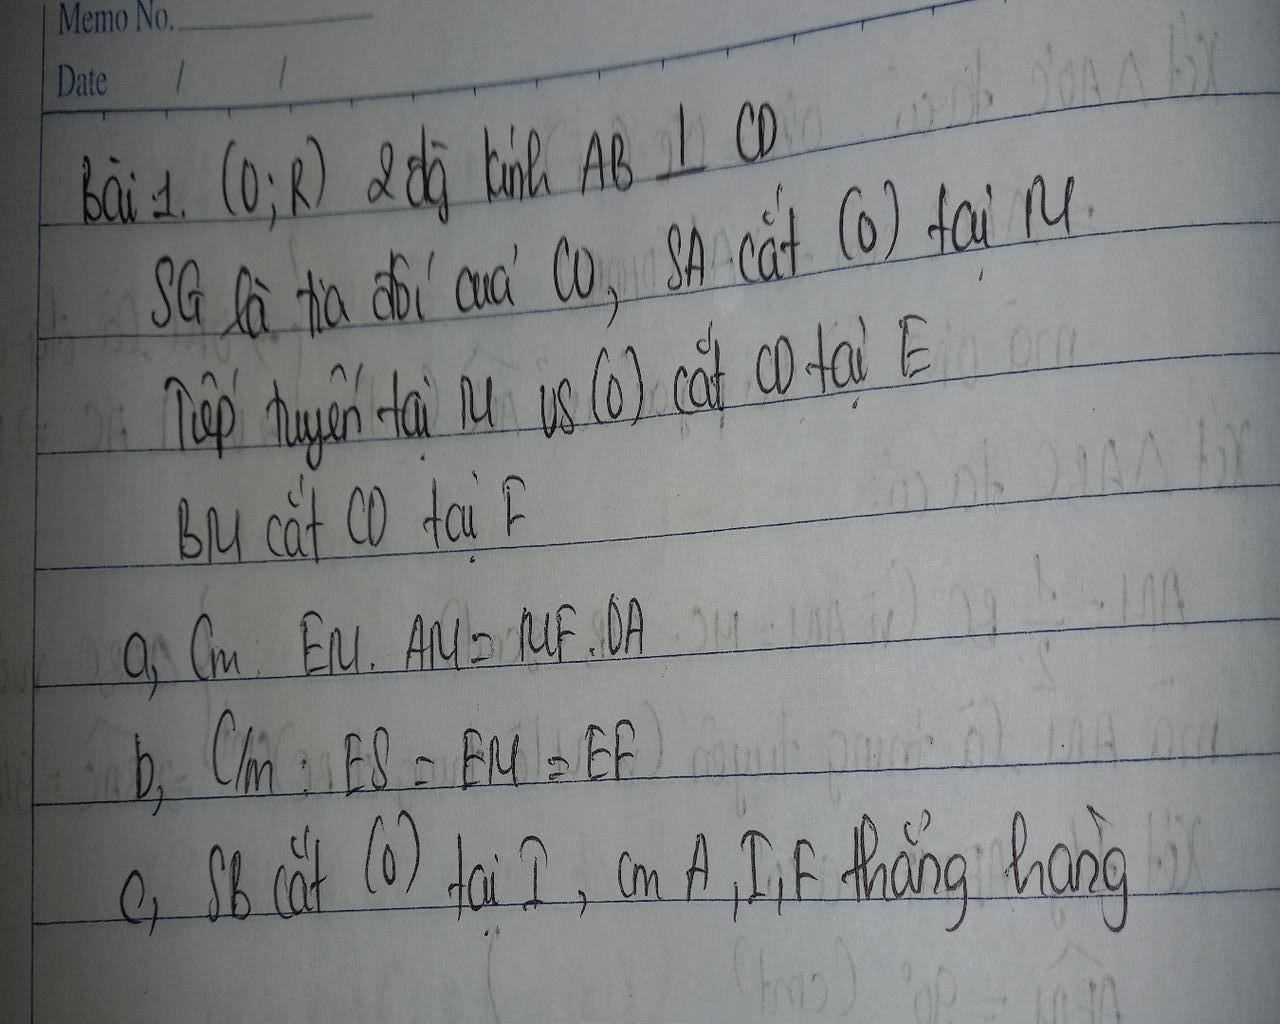 Memo No.
Date / /
Bài 1. (O; R) 2 đg kính AB ⊥ CD
SG là tia đối cuả CO, SA cắt (O) tại M.
Tiếp tuyến tại M vs (O) cắt CD tại E
BM cắt CD tại F
a, Cm EM. AM = MF. OA
b, C/m : ES = EM = EF
c, SB cắt (O) tại I, cm A, I, F thẳng hàng